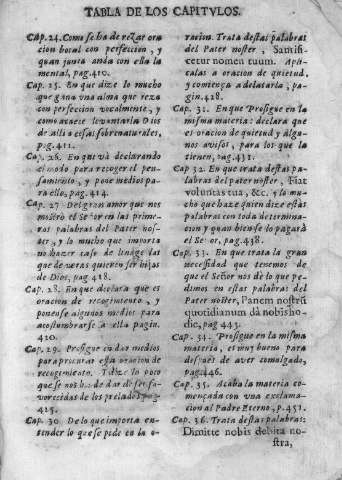 TABLA DE LOS CAPITVLOS.
Cap. 24. Como se ha de rezar oracion
bocal con perfeccion, y
quan junta anda con ella la
mental, pag. 410.
Cap. 25. En que dize lo mucho
que gana vna alma que reza
con perfeccion vocalmente, y
como acaece levantarla Dios
de alli a cosas sobrenaturales,
pag. 411.
Cap. 26. En que và declarando
el modo para recoger el pensamiento,
y pone medios para
ello, pag. 414.
Cap. 27 Del gran amor que nos
mostrò el Señor en las primeras
palabras del Pater noster,
y lo mucho que importa
no hazer caso de linage las
que de veras quieren ser hijas
de Dios, pag. 418.
Cap. 28. En que declara que es
oracion de recogimiento, y
ponense algunos medios para
acostumbrarse a ella pagin.
420.
Cap. 29. Prosigue en dar medios
para procurar esta oracion de
recogimiento. Dize lo poco
que se nos ha de dar de ser favorecidas
de los prelados, pag.
425.
Cap. 30. De lo que importa entender
lo que se pide en la oracion.
Trata destas palabras
del Pater noster, Santificetur
nomen tuum. Aplicalas
a oracion de quietud,
y comença a declararla, pagin.
428.
Cap. 31. En que Prosigue en la
misma materia: declara que
es oracion de quietud y algunos
avisos, para los que la
tienen, pag. 431.
Cap 32. En que trata destas palabras
del Pater noster, Fiat
voluntas tua, &c. y lo mucho
que haze quien dize estas
palabras con toda determinacion
y quan bien se lo pagarà
el Señor, pag. 438.
Cap. 33. En que trata la gran
necessidad que tenemos de
que el Señor nos dè lo que pedimos
en estas palabras del
Pater noster, Panem nostrũ
quotidianum dà nobis hodie,
pag 443.
Cap. 34. Prosigue en la misma
materia, es muy bueno para
despues de aver comulgado,
pag. 446.
Cap. 35. Acaba la materia començada
con vna exclamacion
al Padre Eterno, p. 451.
Cap. 36. Trata destas palabras:
Dimitte nobis debita nostra,